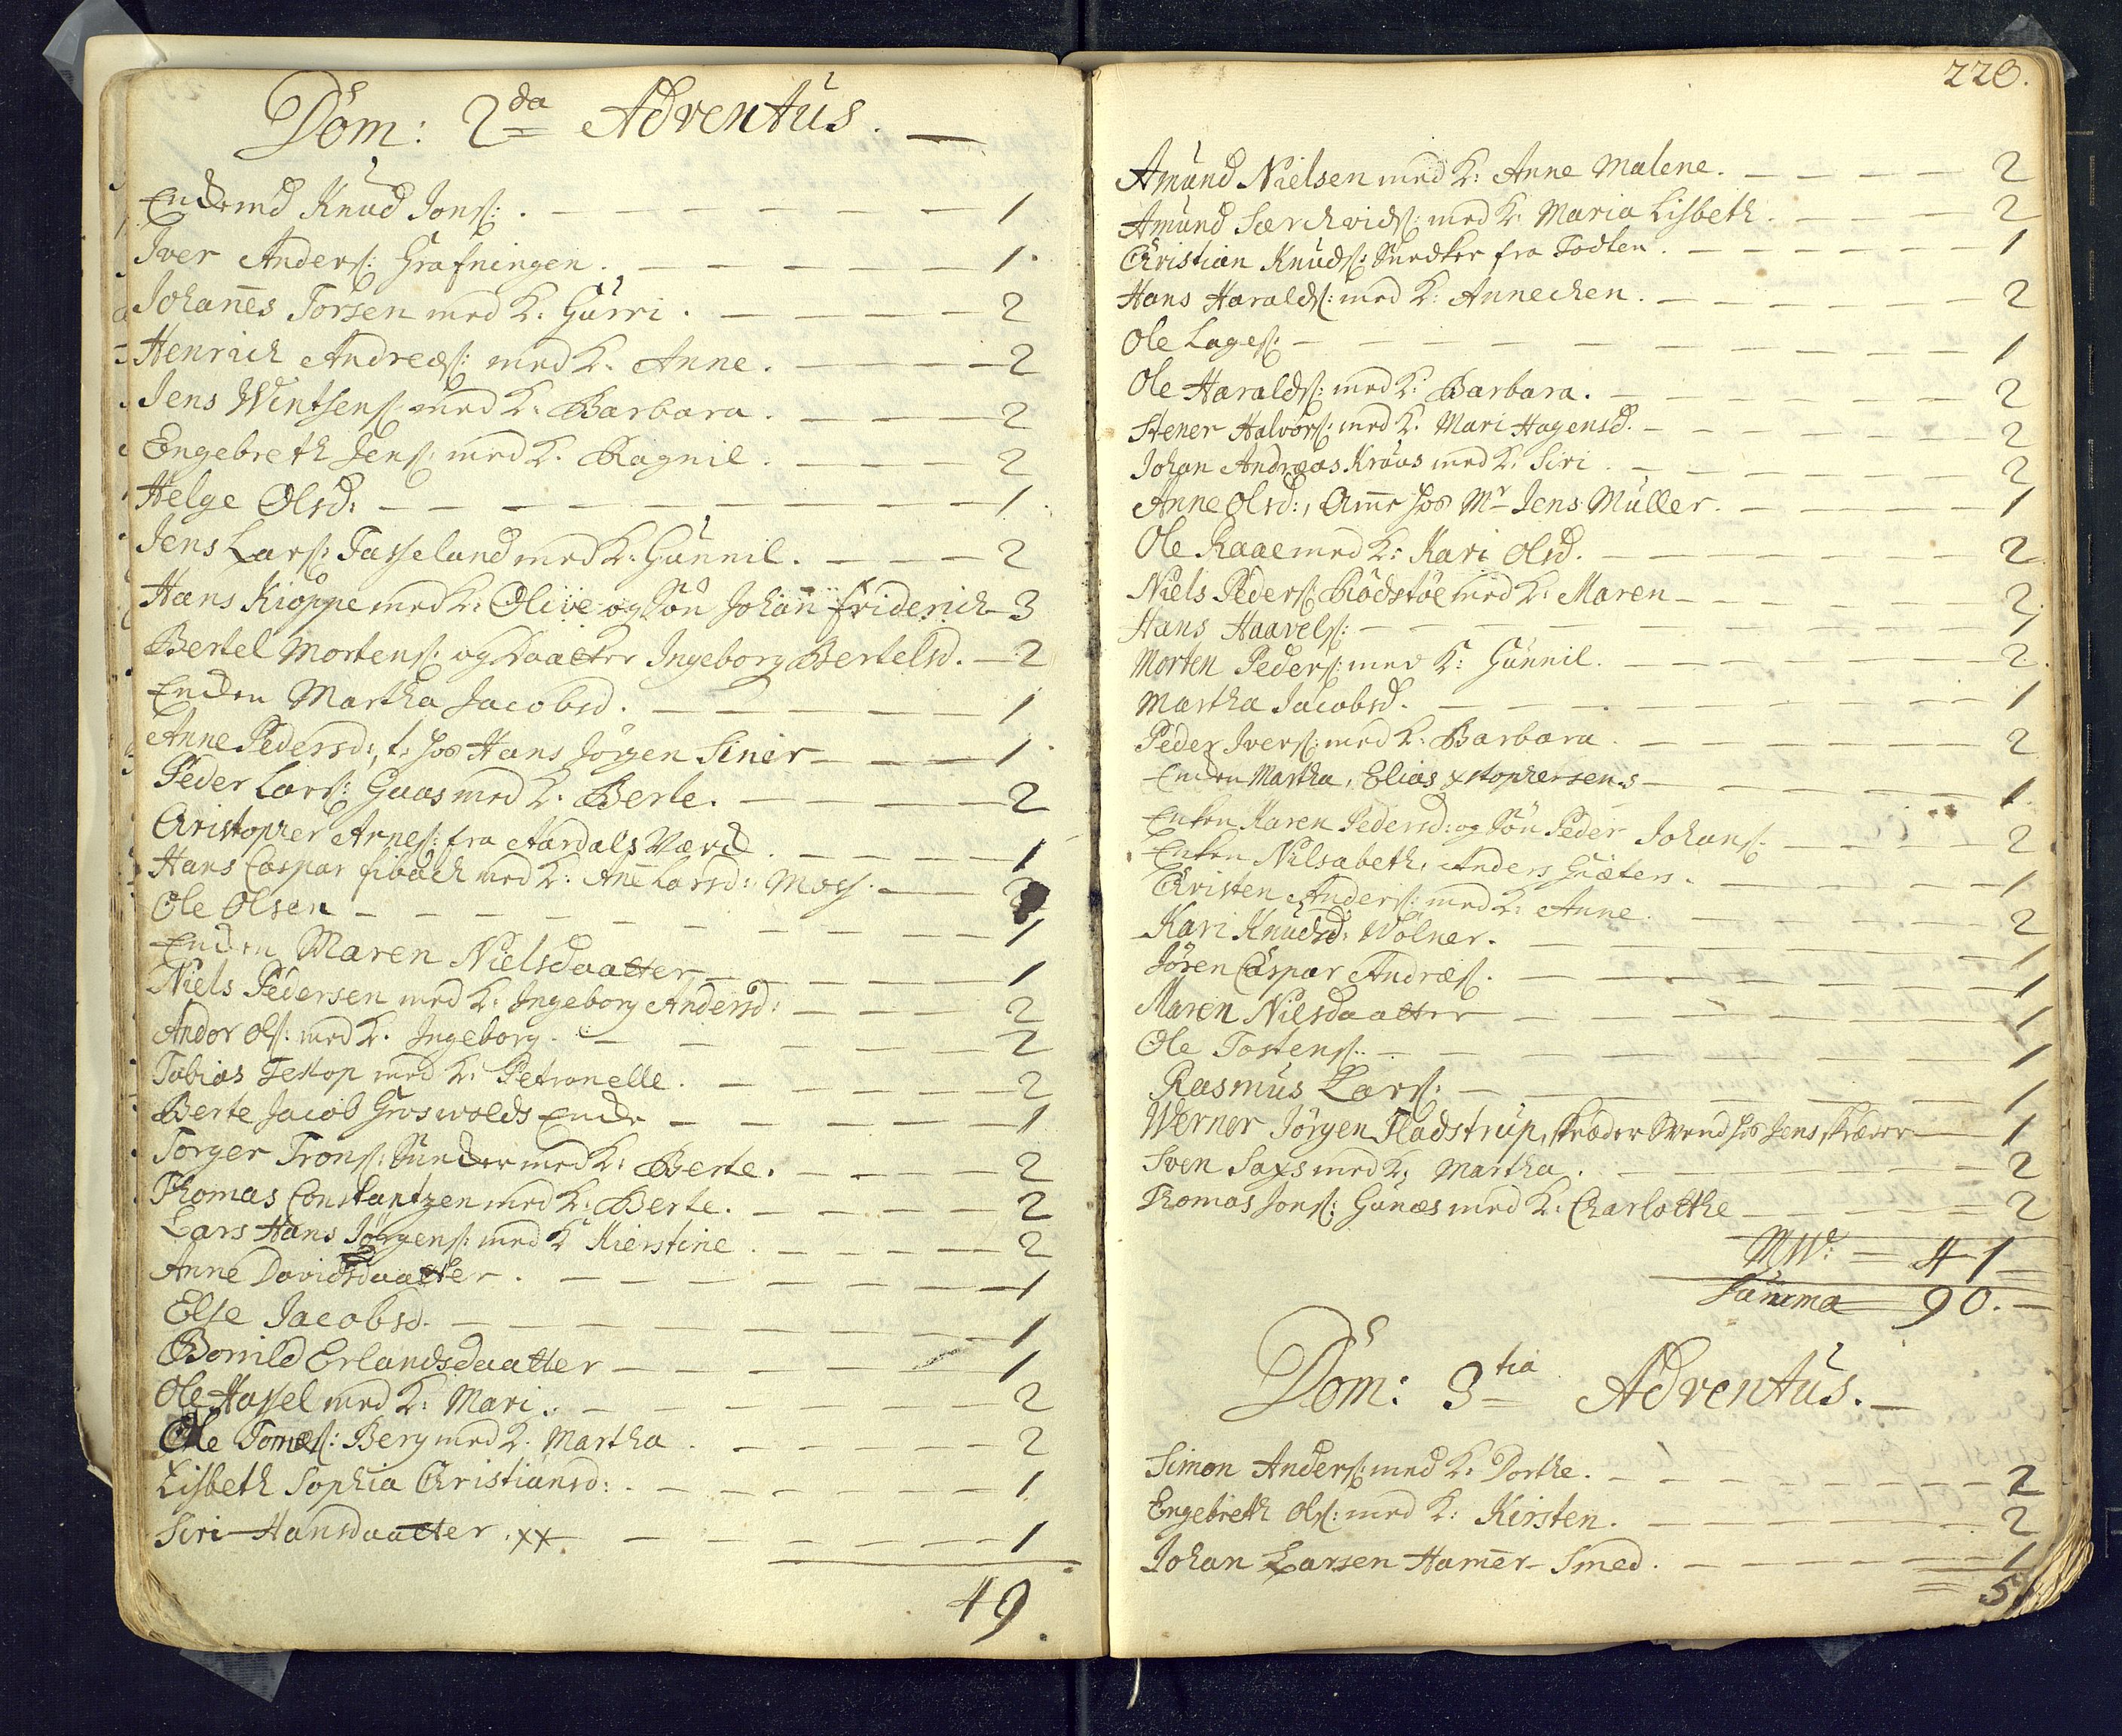 Dom: 2da Adventus. —
Enckemd Knud Jons: . — 1
Iver Anders: Grafningen. — 1.
Johanes Torsen med K: Gurri. — 2
Henrich Andreæs: med K. Anne. — 2
Jens Wintsens: med K: Barbara. — 2
Engebreth Jens: med K. Ragnil. — 2
Helge Olsd: — 1.
Jens Lars: Tasseland med K: Gunnil. — 2
Hans Kioppe med K: Olive og Søn Johan Friderich — 3
Bertel Mortens: og Daatter Ingeborg Bertelsd. — 2
Encken Martha Jacobsd. — 1
Anne Pedersd:, t. hos Hans Jørgen Siner — 1.
Peder Lars: Gaas med K. Berte. — 2
Christopher Arnes: fra Aardals Værck. — 1
Hans Caspar Fibach med K: Ane Larsd: Moss. — 2
Ole Olsen — 1
Encken Maren Nielsdaatter — 1
Niels Pedersen med K: Ingeborg Andersd: — 2
Andor Ols: med K. Ingeborg. — 2
Tobias Testop med K: Petronelle. — 2
Berte Jacob Groswolds Encke — 1
Torger Trons: Snecker med K: Berte. — 2
Thomas Constantzen med K: Berte. — 2
Lars Hans Jørgens: med K Kierstine. — 2
Anne Davidsdaatter. — 1
Else Jacobsd. — 1
Bornild Erlandsdaatter — 1
Ole Hassel med K: Mari. — 2
Ole Tomæs: Berg med K. Martha. — 2
Lisbeth Sophia Christiansd: — 1
Siri Hansdaatter. xx. — 1
49.
220.
Amund Nielsen med K: Anne Malene. — 2
Amund Særchvids: med K: Maria Lisbeth. — 2
Christian Knuds: Snedker fra Todten. — 1
Hans Haralds: med K: Annechen. — 2
Ole Lages: — 1
Ole Haralds: med K: Barbara. — 2
Stener Halvors: med K. Mari Hagensd. — 2
Johan Andreas Kraus med K: Siri. — 2
Anne Olsd:, Ame hos Mr Jens Müller. — 1
Ole Raae med K: Kari Olsd. — 2
Niels Peders: Rødstøe med K: Maren — 2
Hans Haavels: — 1
Morten Peders: med K: Gunnil. — 2.
Martha Jacobsd. — 1
Peder Ivers: med K: Barbara. — 2
Encken Martha, Elias xstophersens — 1
Enken Karen Pedersd: og Søn Peder Johans: — 2
Enken Nilsabeth, Anders Græters. — 1
Christen Anders: med K: Anne. — 2
Kari Knudsd: Wolner. — 1
Jören Caspar Andræs. — 1
Maren Nilsdaatter — 1
Ole Tostens: — 1
Rasmus Lars: — 1
Werner Jörgen Fladstrup, skræder Svend hos Jens skræder — 1
Sven Saxs med K: Martha. — 2
Thomas Jons: Gunæs med K: Charlotthe — 2
= 41
Summa 90. —
Dom: 3tia Adventus. —
Simon Anders: med K: Dorthe. — 2
Engebreth Ols: med K: Kirsten. — 2
Johan Larsen Hamer-Smed. — 1
5